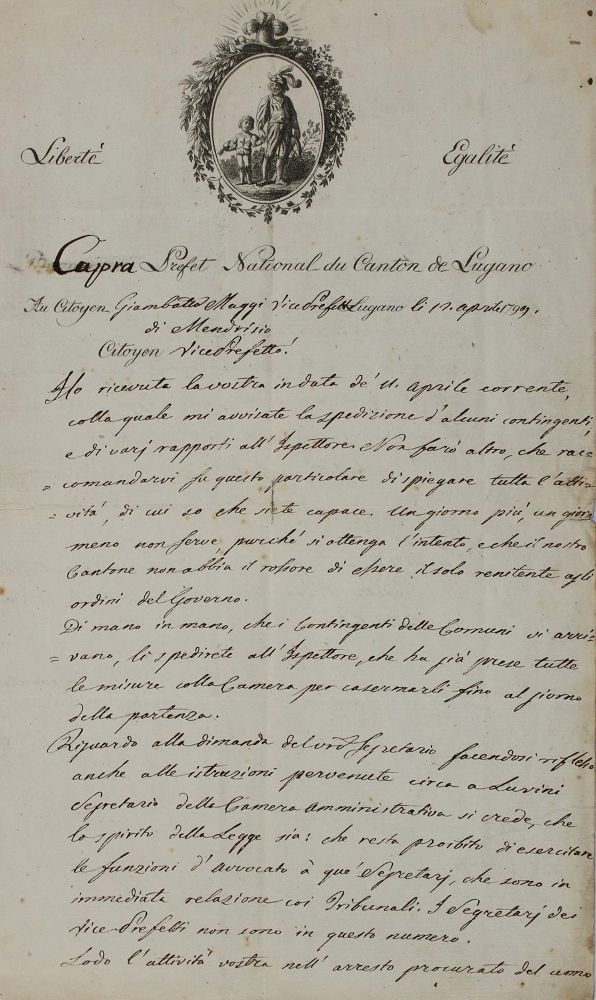 Liberté Egalité
Capra Préfet National du Canton de Lugano
Au Citoyen Giambatta Maggi Vice Prefetto Lugano li 12. aprile 1799.
di Mendrisio
Citoyen Vice Prefetto!
Ho ricevuta la vostra in data de' 11. aprile corrente,
colla quale mi avvisate la spedizione d'alcuni contingenti,
e di varj rapporti all'Ispettore. Non farò altro, che rac=
=comandarvi su questo particolare di spiegare tutta l'atti=
=vità, di cui so che siete capace. Un giorno più, un giorno
meno non serve, purché si ottenga l'intento, e che il nostro
Cantone non abbia il rossore di essere il solo renitente agli
ordini del Governo.
Di mano in mano, che i Contingenti delle Comuni vi arri=
=vano, li spedirete all'Ispettore, che ha già prese tutte
le misure colla Camera per casermarli fino al giorno
della partenza.
Riguardo alla dimanda del Segretario facendosi riflesso
anche alle istruzioni pervenute circa a Luvini
Segretario della Camera Amministrativa si crede, che
lo spirito della Legge sia: che resta proibito di esercitare
le funzioni d'avvocato à que' Segretarj, che sono in
immediata relazione coi Tribunali. I Segretarj dei
Vice Prefetti non sono in questo numero.
Lodo l'attività vostra nell'arresto procurato del uomo